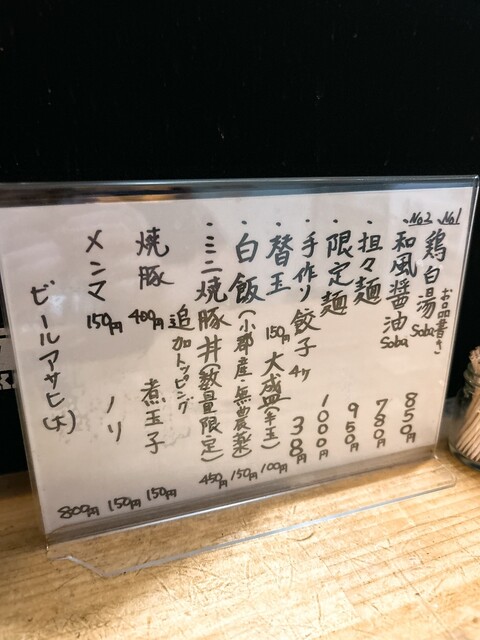 お品書き
No1
・鶏白湯Soba 850
No2
・和風醤油Soba 780
・担々麺 950
・限定麺 1000
・手作り餃子 4ヶ 380円
・替玉 150円 大盛(半玉) 100円
・白飯(小郡産・無農薬) 150円
・ミニ焼豚丼(数量限定) 450円
追加トッピング
焼豚 400円 煮玉子 150円
メンマ 150円 ノリ 150円
ビールアサヒ(大) 800円